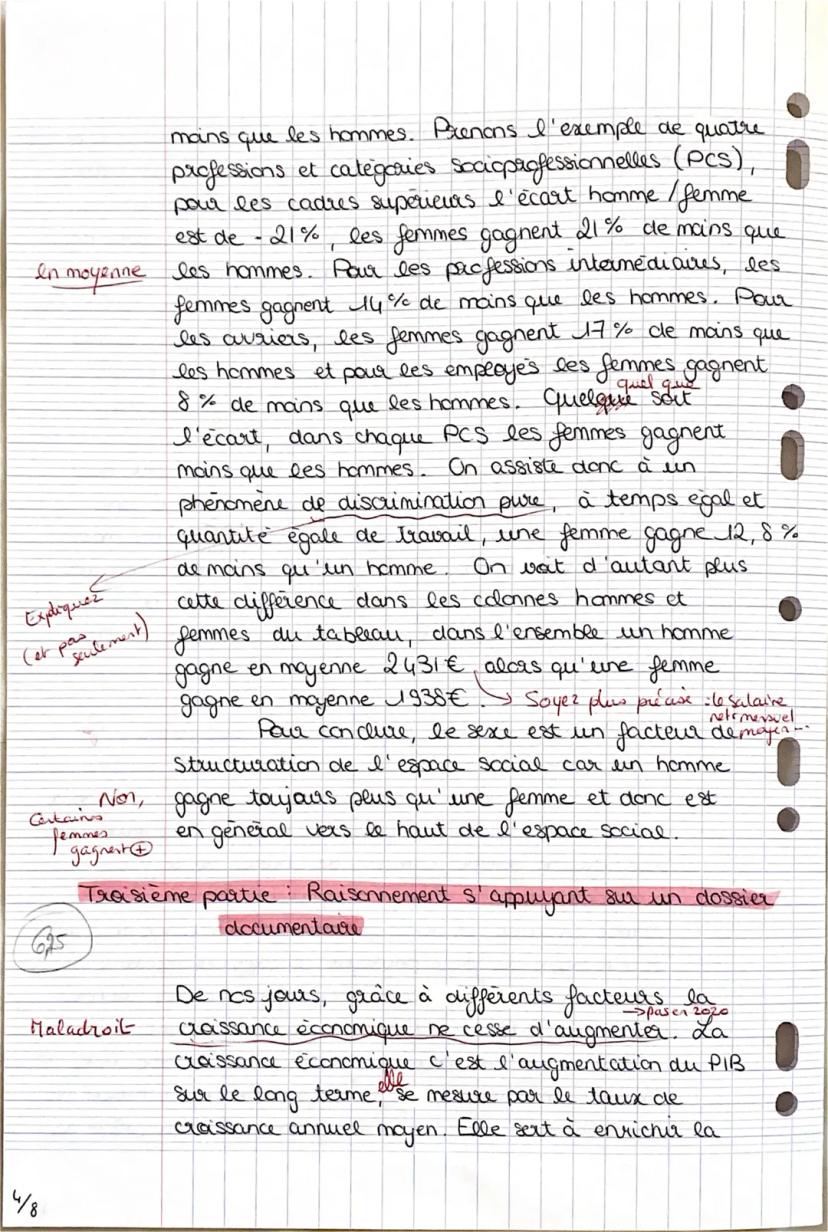 moins que les hommes. Prenons l'exemple de quatre
professions et catégories socioprofessionnelles (PCS),
pour les cadres supérieurs l'écart homme/femme
est de - 21%, les femmes gagnent 21% de moins que
en moyenne
les hommes. Pour les professions intermédiaires, les
femmes gagnent 14% de moins que les hommes. Pour
les ouvriers, les femmes gagnent 17% de moins que
les hommes et pour les employés les femmes gagnent
quel que
8% de moins que les hommes. Quelque soit
l'écart, dans chaque PCS les femmes gagnent
moins que les hommes. On assiste donc à un
phénomène de discrimination pure, à temps égal et
quantité égale de travail, une femme gagne 12,8%
de moins qu'un homme. On voit d'autant plus
Expliquez
(et pas seulement)
cette différence dans les colonnes hommes et
femmes du tableau, dans l'ensemble un homme
gagne en moyenne 2431€ alors qu'une femme
gagne en moyenne 1938€.
→ Soyez plus précise : le salaire
net mensuel
moyen
Pour conclure, le sexe est un facteur de
structuration de l'espace social car un homme
Non,
Certaines
femmes
gagnent +
gagne toujours plus qu'une femme et donc est
en général vers le haut de l'espace social.
Troisième partie : Raisonnement s'appuyant sur un dossier
documentaire
6,25
De nos jours, grâce à différents facteurs la
→ pas en 2020
Maladroit
croissance économique ne cesse d'augmenter. La
croissance économique c'est l'augmentation du PIB
elle
sur le long terme, se mesure par le taux de
croissance annuel moyen. Elle sert à enrichir la
4/8